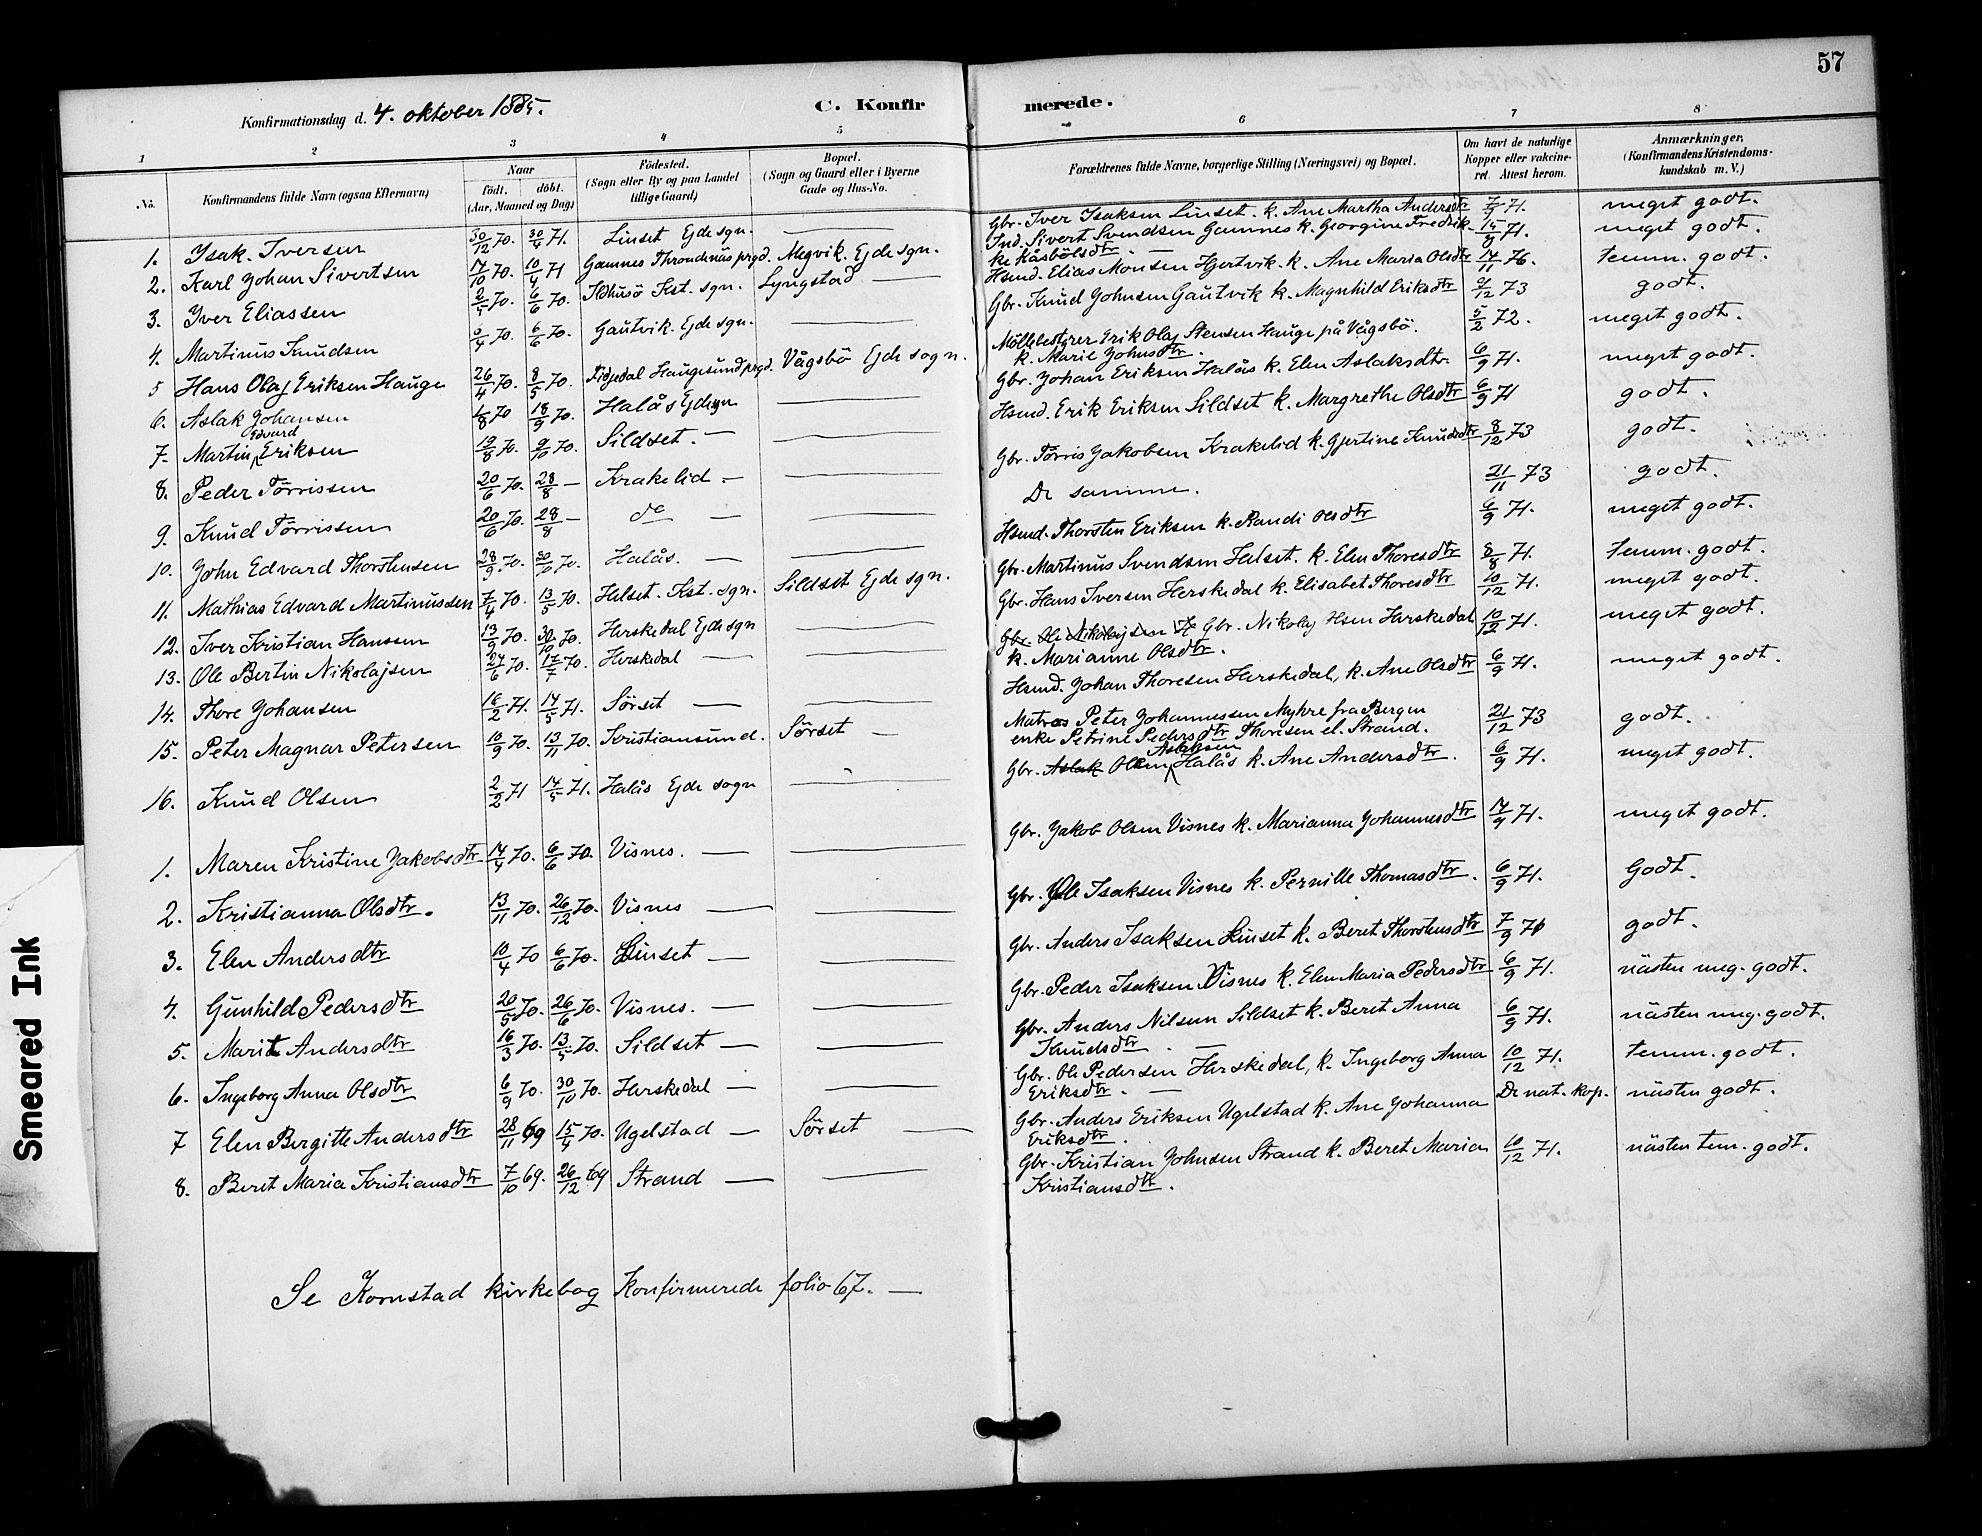 57
Konfirmationsdag d. 4. oktober 1885.
C. Konfirmerede.
1 2 3 4 5 6 7 8
No. Konfirmandens fulde Navn (ogsaa Efternavn) Naar født. døbt. (Aar, Maaned og Dag) Fødested. (Sogn eller By og paa Landet tillige Gaard) Bopæl. (Sogn og Gaard eller i Byerne Gade og Hus-No. Forældrenes fulde Navne, borgerlige Stilling (Næringsvei) og Bopæl. Om havt de naturlige Kopper eller vakcineret. Attest herom. Anmærkninger, (Konfirmandens Kristendomskundskab m. V.)
1. Isak Iversen 30/12 70. 30/4 71. Linset Ejde sgn. — Gbr. Iver Isaksen Linset. k. Ane Martha Andersdtr 7/9 71. meget godt.
2. Karl Johan Sivertsen 17/10 70. 10/4 71 Gamnes Throndenäs prgd. Megvik. Ejde sgn. Ind. Sivert Svendsen Gamnes k. Georgine Fredrikke Käsbölsdtr — 15/9 71. meget godt.
3. Iver Eliassen 2/5 70. 6/6 70. Kst. sgn. Lyngstad — Hsmd. Elias Monsen Hjertvik. k. Ane Maria Olsdtr 14/11 76. temm. godt.
4. Martinus Knudsen /4 70. 6/6 70. Gautvik. Ejde sgn. — Gbr. Knud Johnsen Gautvik k. Magnhild Eriksdtr /12 73 godt.
5 Hans Olaj Eriksen Hauge 26/4 70. 8/5 70. Haugesund prgd. Vågsbö Ejde sogn. Möllebestyrer Erik Olaj Stensen Hauge på Vågsbö. k. Marie Johnsdtr. 5/2 72. meget godt.
6. Aslak Johansen /8 70 18/9 70. Halås Ejde sgn — Gbr. Johan Eriksen Halås k. Elen Aslaksdtr. 6/9 71. meget godt.
7. Martin Edvard Eriksen 19/8 70. 9/10 70. Sildset. — — Hsmd. Erik Eriksen Sildset k. Margrethe Olsdtr 6/9 71 godt.
8. Peder Törrissen 20/6 70. 28/8 — Krakelid — — Gbr. Törris Jakobsen Krakelid k. Gjertine Knudsdtr 8/12 73 godt.
9. Knud Törrissen 20/6 70. 28/8 — do — — De samme. 21/11 73 godt.
10. John Edvard Thorstensen 28/9 70. 30/10 70. Halås. — — Hsmd. Thorsten Eriksen k. Randi Olsdtr 6/9 71. meget godt.
11. Mathias Edvard Martinussen 7/4 70. 13/5 70. Helset. Kst. sgn. Sildset Ejde sgn. Gbr. Martinus Svendsen Helset. k. Elen Thoresdtr 8/8 71. temm. godt.
12. Iver Kristian Hanssen 13/9 70. 30/10 70. Herskedal Ejde sgn — Gbr. Hans Iversen Herskedal k. Elisabet Thoresdtr 10/12 71. meget godt.
13. Ole Bertin Nikolajsen 27/6 70. 17/7 70. Herskedal — — Gbr. Ole Nikolajsen Gbr. Nikolaj Olsen Herskedal k. Marianne Olsdtr. 10/12 71. meget godt.
14. Thore Johansen 16/2 71. 14/5 71. Sörset — — Hsmd. Johan Thoresen Herskedal, k. Ane Olsdtr 6/9 71. meget godt.
15. Peter Magnar Petersen 10/9 70. 13/11 70. Kristiansund. Sörset — Matros Peter Johannessen Myhre fra Bergen enke Petrine Pedersdtr Thoresen el. Strand. 21/12 73 godt.
16. Knud Olsen 2/2 71 14/5 71. Halås Ejde sogn — Gbr. Aslak Olsen Aslaksen Halås k. Ane Andersdtr. 6/9 71. meget godt.
1. Maren Kristine Jakobsdtr 14/4 70. 6/6 70. Visnes. — — Gbr. Jakob Olsen Visnes k. Marianna Johannesdtr 14/9 71. meget godt.
2. Kristianna Olsdtr. 13/11 70. 26/12 70. Visnes — — Gbr. Ole Isaksen Visnes k. Pernille Thomasdtr. 6/9 71. Godt.
3. Elen Andersdtr 10/4 70 6/6 70. Linset — — Gbr. Anders Isaksen Linset k. Beret Thorstensdtr 7/9 71 godt.
4. Gunhild Pedersdtr 20/5 70. 26/6 70. Visnes. — — Gbr. Peder Isaksen Visnes k. Elen Maria Pedersdtr 6/9 71. nästen meg. godt.
5. Marit Andersdtr 16/3 70. 13/5 70. Sildset — — Gbr. Anders Nilsen Sildset k. Beret Anna Knudsdtr. — 6/9 71. nästen meg. godt.
6. Ingeborg Anna Olsdtr 6/9 70. 30/10 70. Herskedal — — Gbr. Ole Pedersen Herskedal, k. Ingeborg Anna Eriksdtr. — 10/12 71. temm. godt.
7 Elen Bergitte Andersdtr 28/11 69 15/4 70. Ugelstad — Sörset — Gbr. Anders Eriksen Ugelstad k. Ane Johanna Eriksdtr. De nat. kop. nästen godt.
8. Beret Maria Kristiansdtr 7/10 69. 26/12 69 Strand — — Gbr. Kristian Johnsen Strand k. Beret Maria Kristiansdtr. 10/12 71. nästen tem. godt.
Se Kornstad kirkebog Konfirmerede folio 67. —
Smeared Ink